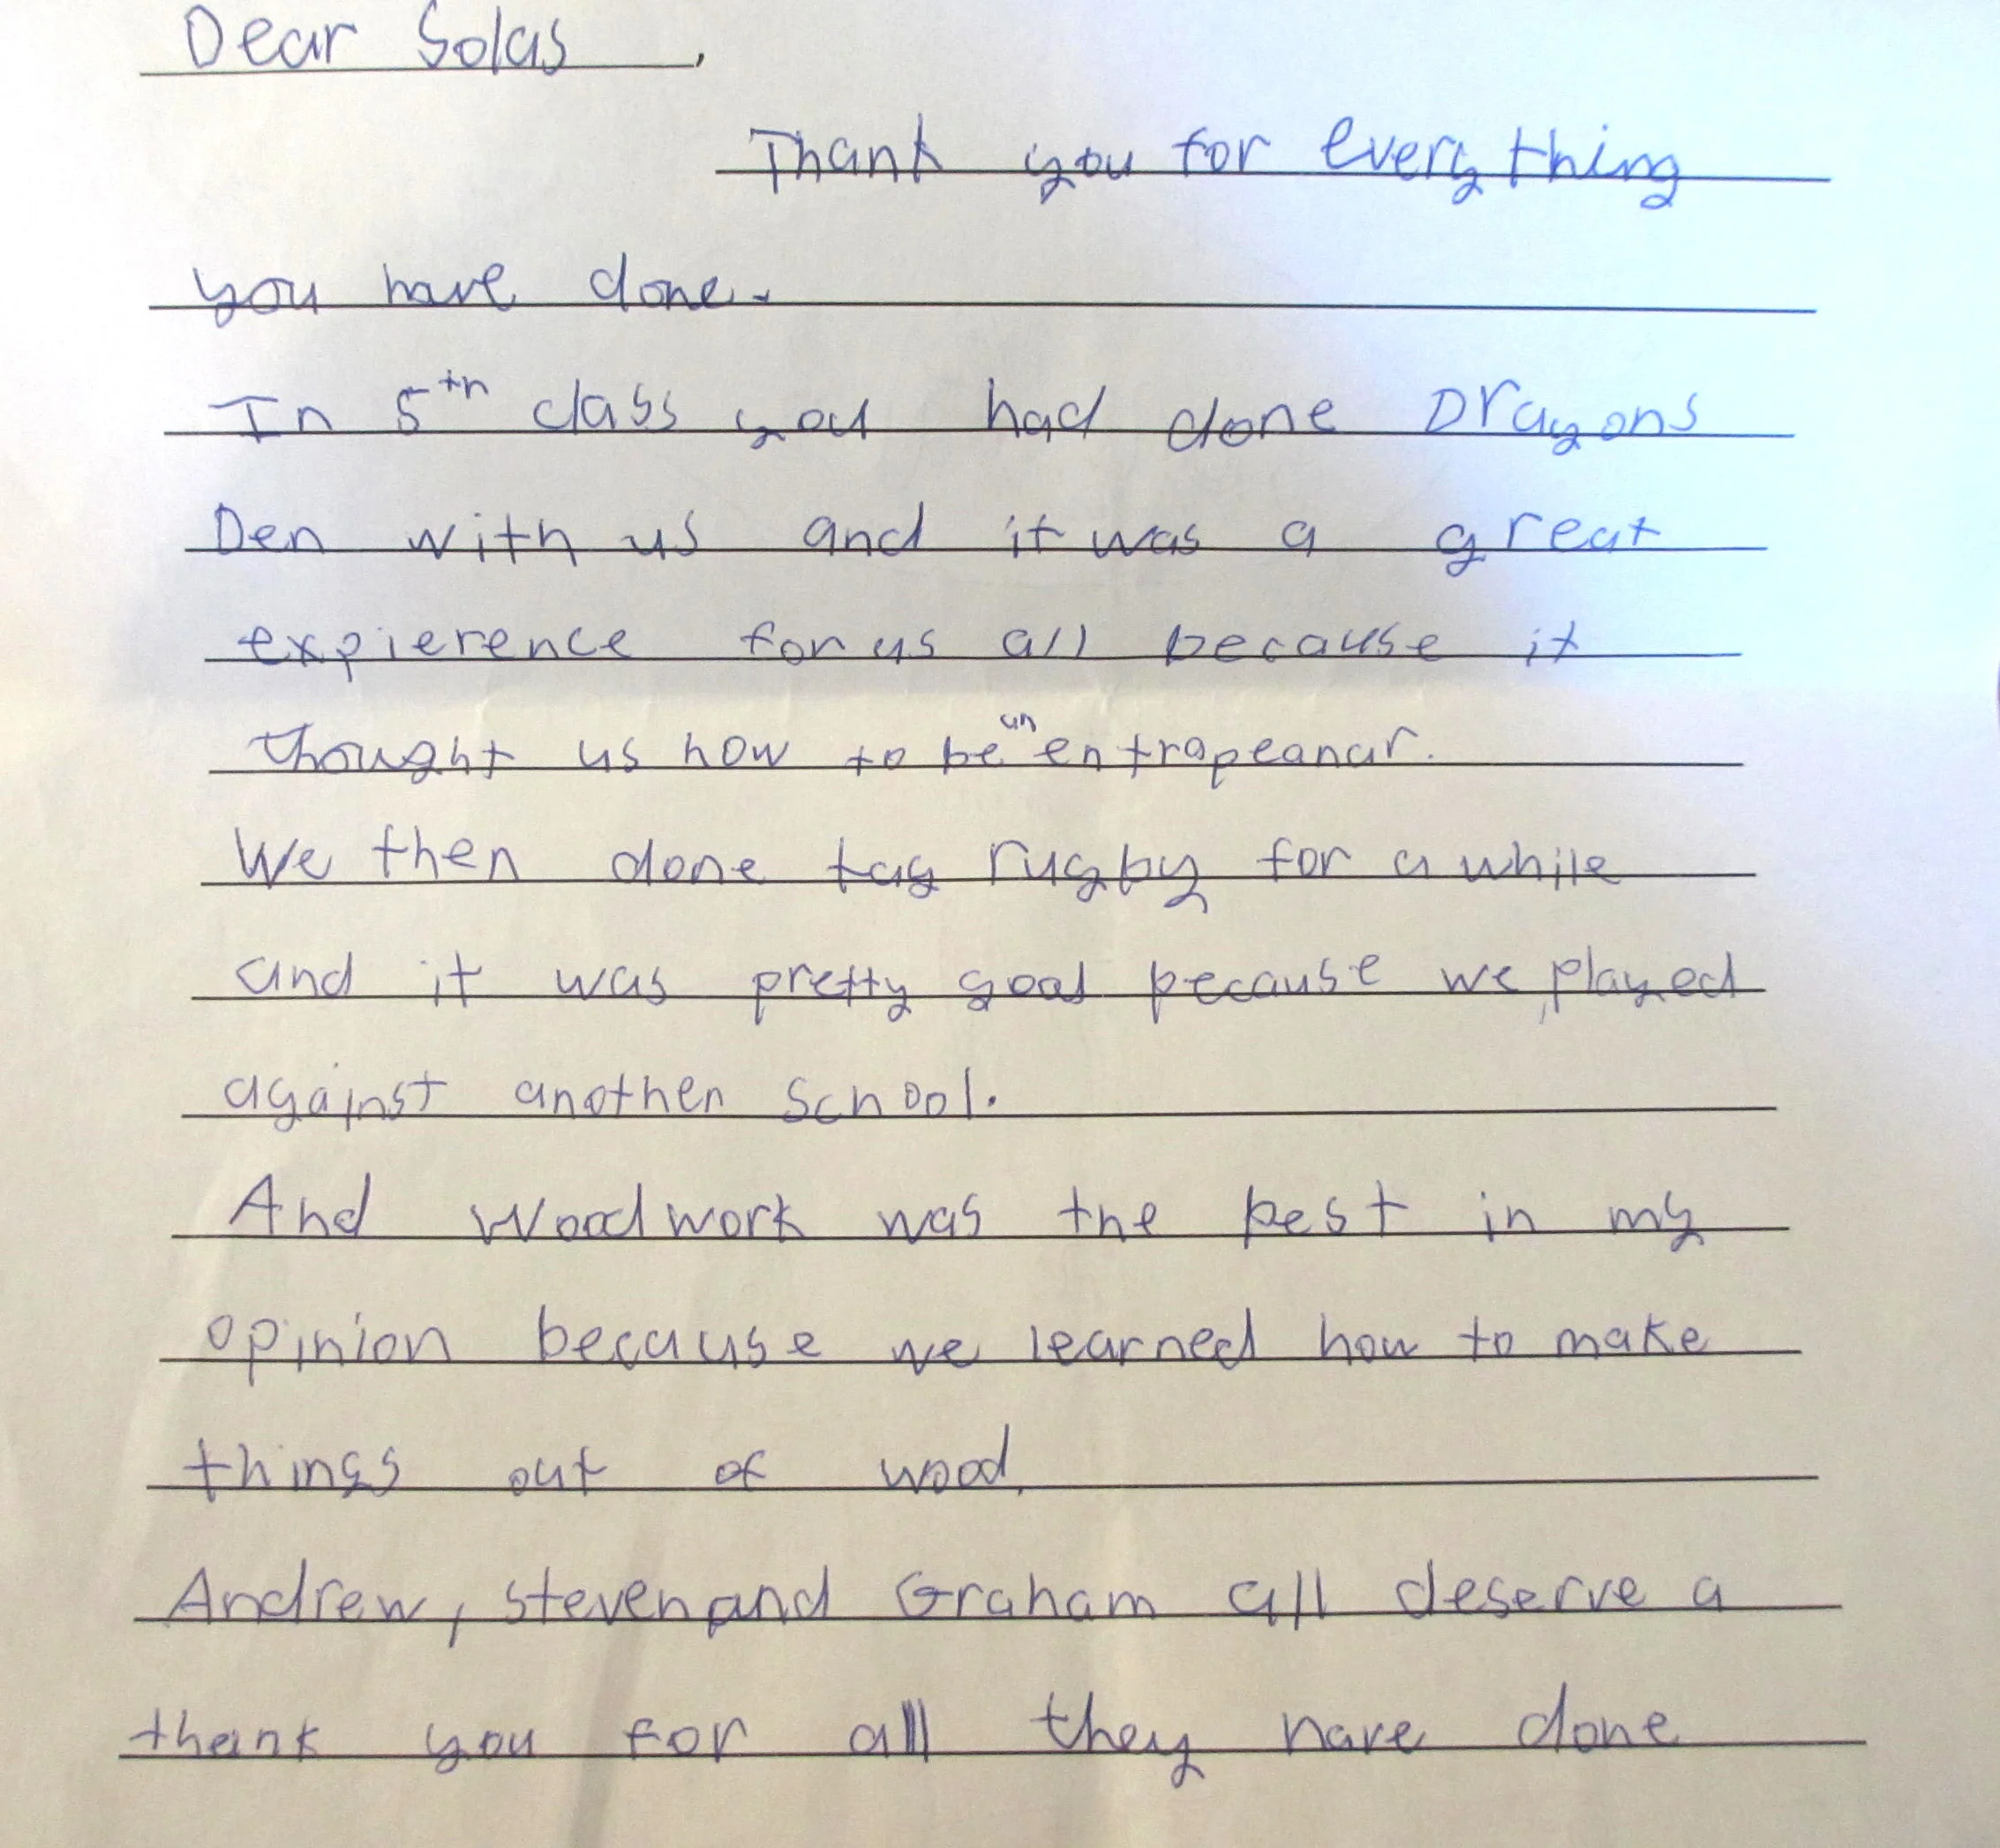 Dear Solas,
Thank you for everything
you have done.
In 5th class you had done Dragons
Den with us and it was a great
expierence for us all because it
thought us how to be an entrapeanar.
We then done tag rugby for a while
and it was pretty good because we played
against another school.
And Woodwork was the best in my
opinion because we learned how to make
things out of wood.
Andrew, Steven and Graham all deserve a
thank you for all they have done